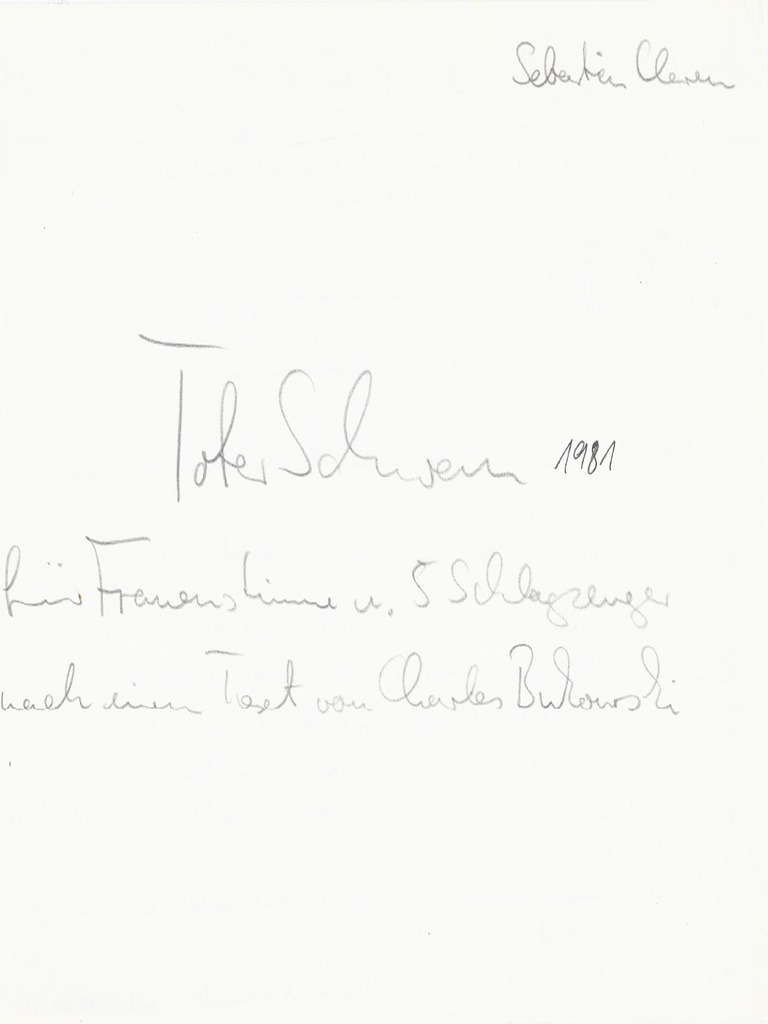 Sebastian Claren
Toter Schwan 1981
für Frauenstimme u. 5 Schlagzeuger
nach einem Text von Charles Bukowski